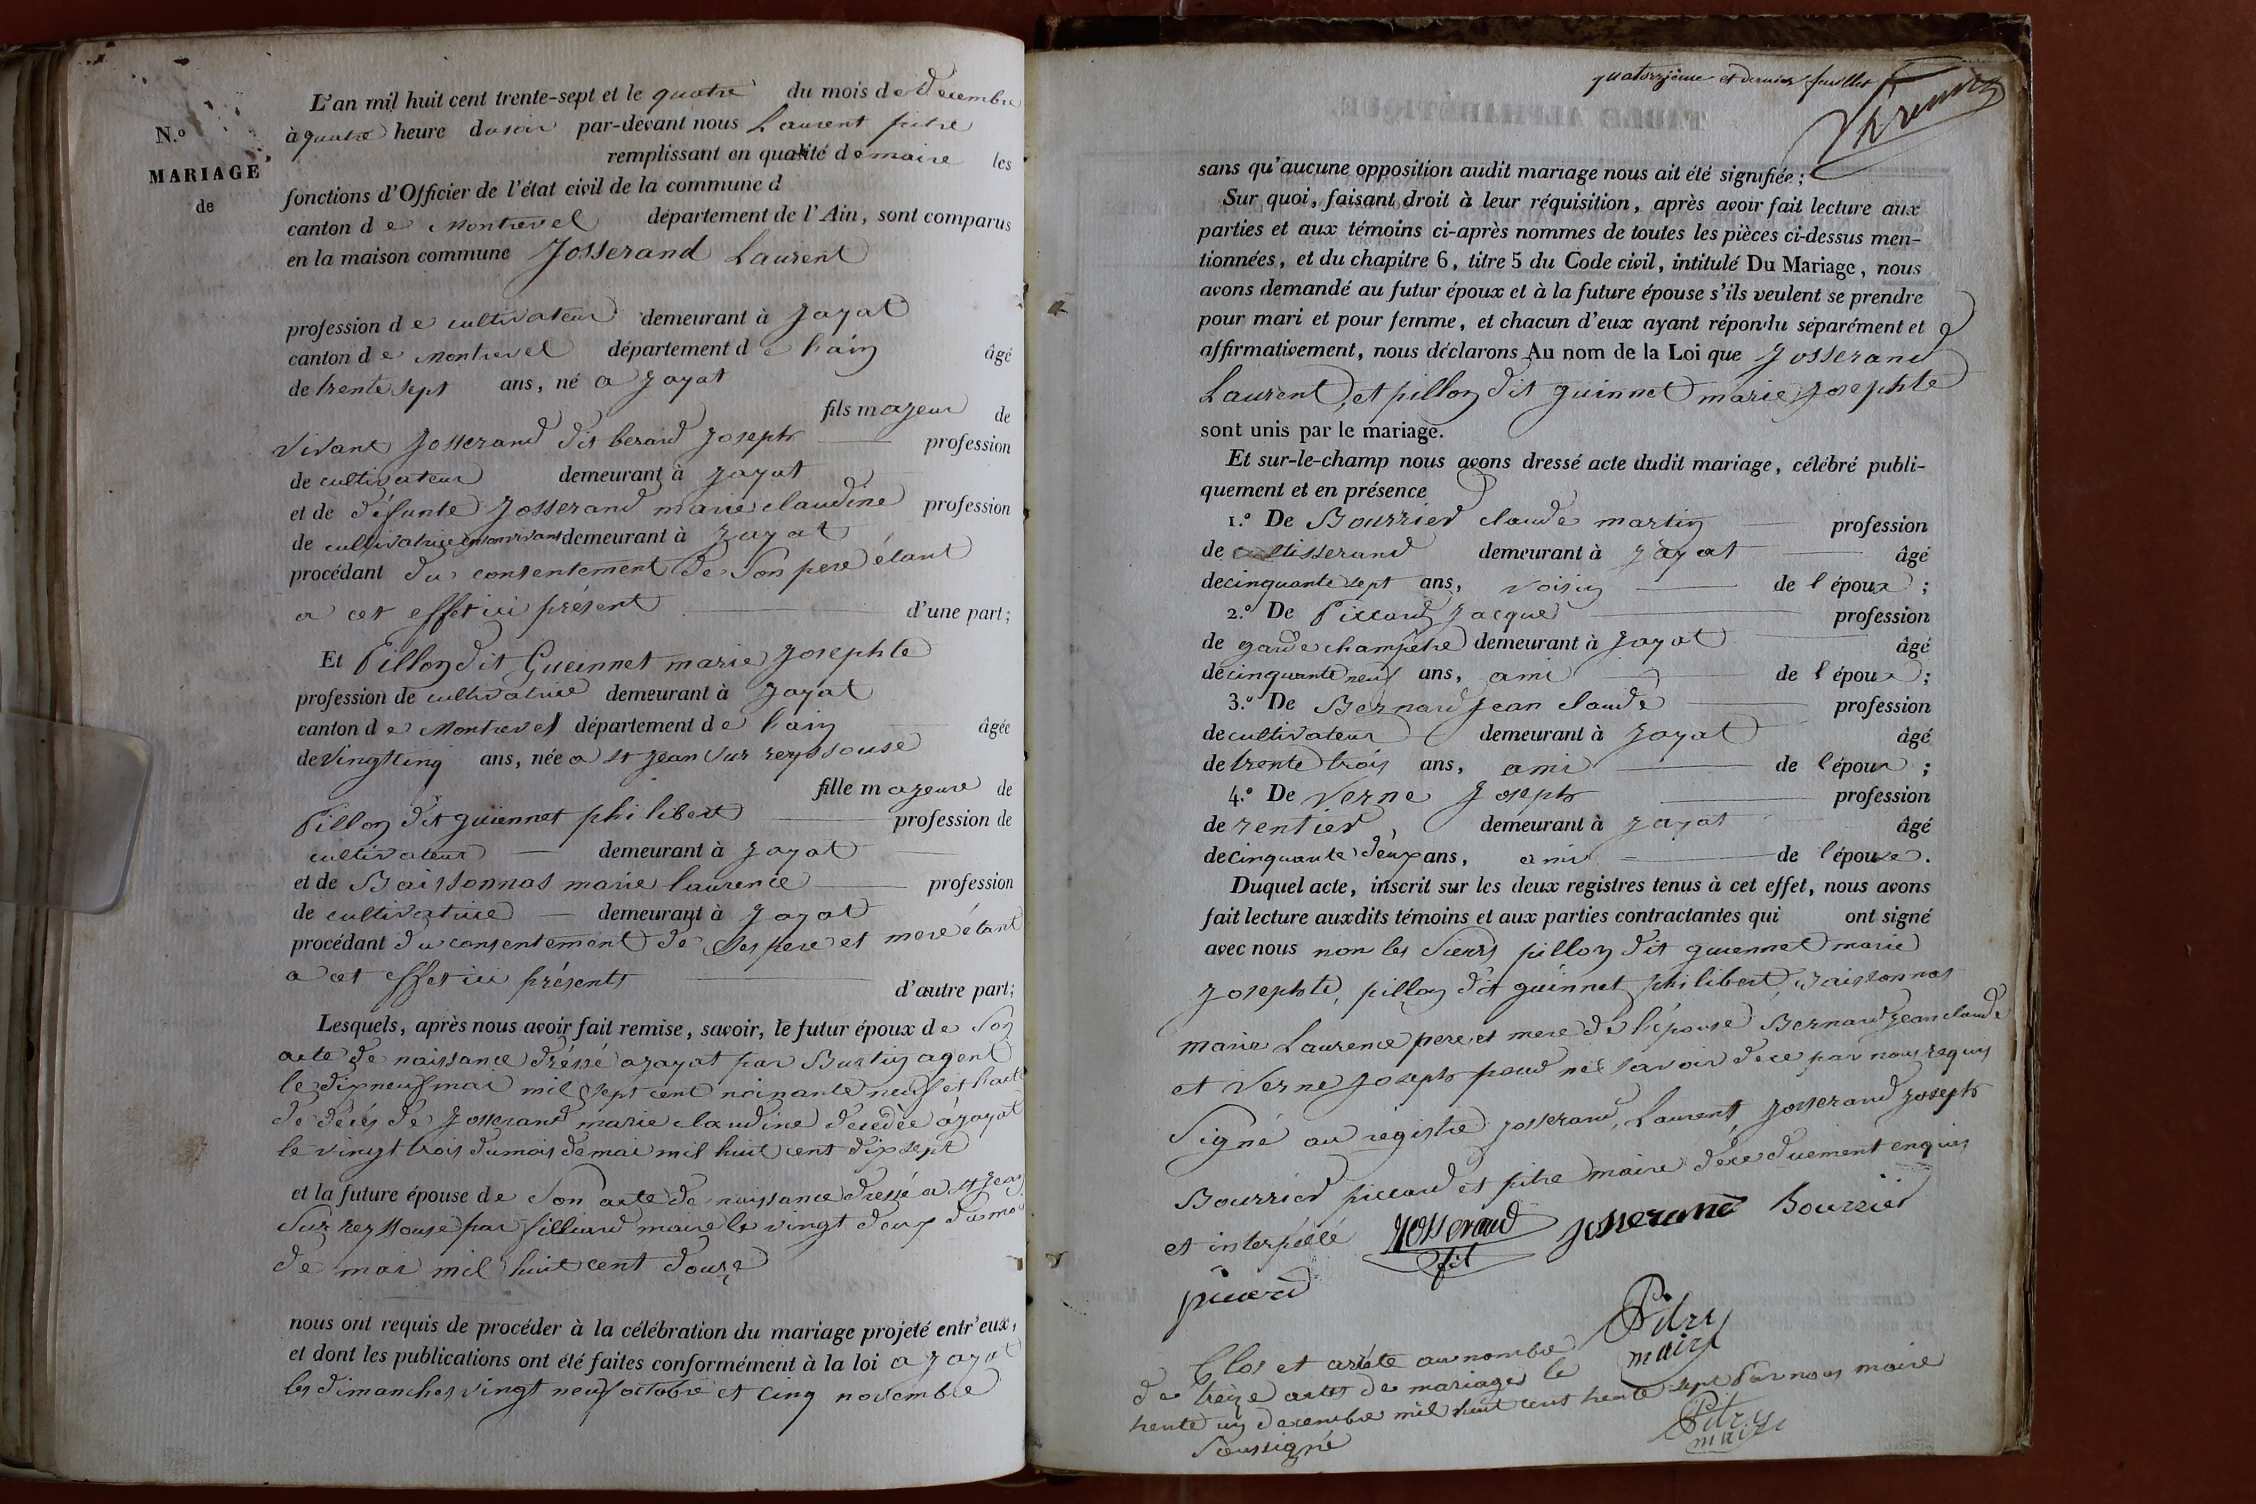 N.º
MARIAGE
de
L'an mil huit cent trente-sept et le quatre du mois de Decembre
à quatre heure dusoir par-devant nous Laurent pitre
remplissant en qualité de maire les
fonctions d'Officier de l'état civil de la commune d
canton de Montrevel département de l'Ain, sont comparus
en la maison commune Josserand Laurent
profession de cultivateur demeurant à Jayat
canton de Montrevel département de l'ain âgé
de trente sept ans, né a Jayat
fils majeur de
vivant Josserand dit berard Joseph profession
de cultivateur demeurant à Jayat
et de défunte Josserand marie claudine profession
de cultivatrice en son vivant demeurant à Jayat
procédant du consentement de son pere étant
a cet effet ici présent d'une part;
Et Pillon dit Gueinnet marie Josephte
profession de cultivatrice demeurant à Jayat
canton de Montrevel département de l'ain âgée
de vingt cinq ans, née a st jean sur reyssouse
fille majeure de
Pillon dit guiennet philibert profession de
cultivateur demeurant à Jayat
et de Baissonnas marie laurence profession
de cultivatrice demeurant à Jayat
procédant du consentement de ses pere et mere étant
a cet effet ici présents d'autre part;
Lesquels, après nous avoir fait remise, savoir, le futur époux de son
acte de naissance dréssé a jayat par Burtin agent
le dix neuf mai mil sept cent noinante neuf et l'acte
de décés de Josserand marie claudine décédée à jayat
le vingt trois du mois de mai mil huit cent dix sept
et la future épouse de son acte de naissance dressé a st jean
sur reyssouse par filliard maire le vingt deux du moi
de mai mil huit cent douze
nous ont requis de procéder à la célébration du mariage projeté entr'eux,
et dont les publications ont été faites conformément à la loi a Jayat
les dimanches vingt neuf octobre et cinq novembre
quatorzième et dernier feuillet
sans qu'aucune opposition audit mariage nous ait été signifiée;
Sur quoi, faisant droit à leur réquisition, après avoir fait lecture aux
parties et aux témoins ci-après nommes de toutes les pièces ci-dessus men-
tionnées, et du chapitre 6, titre 5 du Code civil, intitulé Du Mariage, nous
avons demandé au futur époux et à la future épouse s'ils veulent se prendre
pour mari et pour femme, et chacun d'eux ayant répondu séparément et
affirmativement, nous déclarons Au nom de la Loi que Josserand
Laurent, et pillon dit guinnet marie Josephte
sont unis par le mariage.
Et sur-le-champ nous avons dressé acte dudit mariage, célébré publi-
quement et en présence
1.º De Bourrier claude martin profession
de tisserand demeurant à Jayat âgé
de cinquante sept ans, voisin de l'époux;
2.º De Piccard Jacque profession
de garde champêtre demeurant à Jayat âgé
de cinquante neuf ans, ami de l'époux;
3.º De Bernard jean claude profession
de cultivateur demeurant à Jayat âgé
de trente trois ans, ami de l'époux;
4.º De Verne Joseph profession
de rentier demeurant à Jayat âgé
de cinquante deux ans, ami de l'épouse.
Duquel acte, inscrit sur les deux registres tenus à cet effet, nous avons
fait lecture auxdits témoins et aux parties contractantes qui ont signé
avec nous non les sieurs pillon dit guiennet marie
Josephte, pillon dit guinnet philibert, Baissonnas
marie Laurence pere et mere de l'épouse Bernard jean claude
et Verne Joseph pour ne savoir de ce par nous requis
Signé au registre Josserand, Laurent, Josserand Joseph
Bourrier piccard et pitre maire de ce duement enquis
et interpéllé Josserand Josserand Bourrier
fil
picard
Pitre
maire
Clos et arrêté au nombre
de treize actes de mariages le
trente un decembre mil huit cent trente sept Par nous maire
Soussigné
Pitre
maire